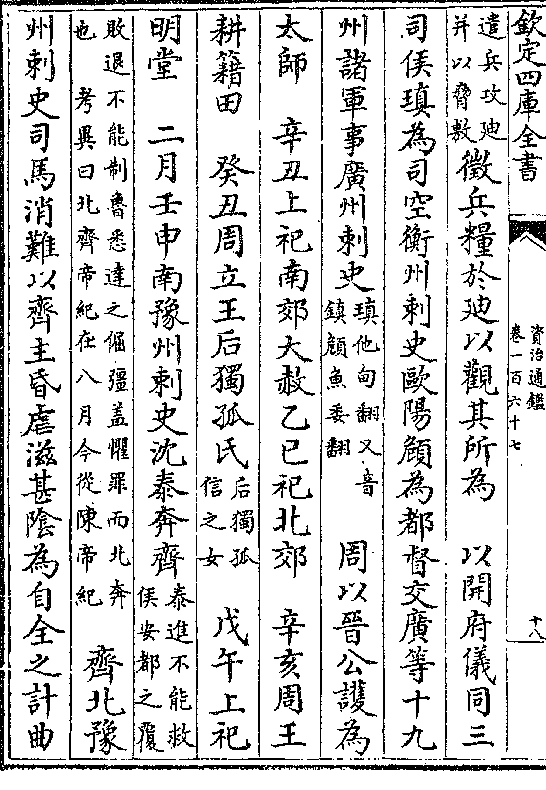 欽定四庫全書
資治通鑑
卷一百六十七
十八
遣兵攻廸
并以脅敷
徵兵糧於廸以觀其所為　以開府儀同三
司侯瑱為司空衡州刺史歐陽頠為都督交廣等十九
州諸軍事廣州刺史
瑱他甸翻又音
鎮頠魚委翻
周以晉公護為
太師　辛丑上祀南郊大赦乙巳祀北郊　辛亥周王
耕籍田　癸丑周立王后獨孤氏
后獨孤
信之女
戊午上祀
明堂　二月壬申南豫州刺史沈泰奔齊
泰進不能救
侯安都之覆
敗退不能制魯悉達之倔彊盖懼罪而北奔
也　考異曰北齊帝紀在八月今從陳帝紀
齊北豫
州刺史司馬消難以齊主昏虐滋甚陰為自全之計曲